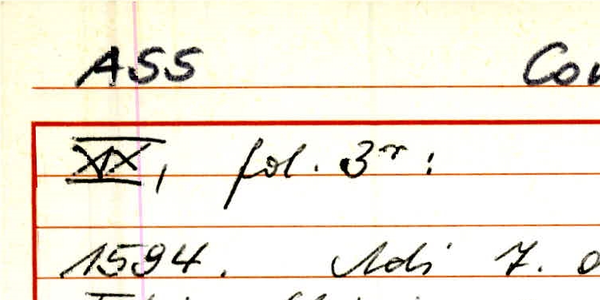 ASS Con
XX, fol. 3r:
1594. Adi 7. d